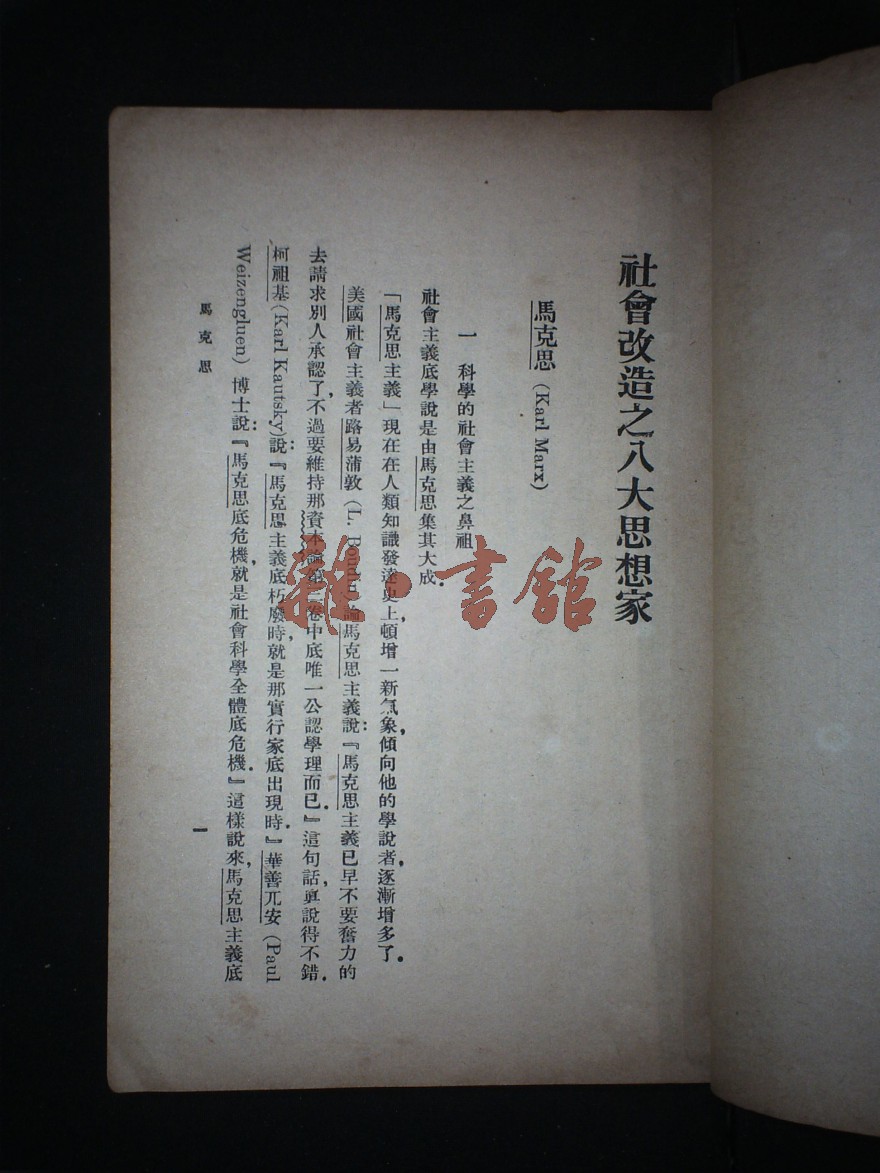 社會改造之八大思想家
馬克思 (Karl Marx)
一 科學的社會主義之鼻祖
社會主義底學說是由馬克思集其大成.
「馬克思主義」現在在人類知識發達史上,頓增一新氣象,傾向他的學說者,逐漸增多了.
美國社會主義者路易蒲敦 (L. 馬克思主義說:『馬克思主義已早不要奮力的
去請求別人承認了,不過要維持那資本論第一卷中底唯一公認學理而已.』這句話,眞說得不錯.
柯祖基 (Karl Kautsky) 說:『馬克思主義底朽廢時,就是那實行家底出現時.』華善兀安 (Paul
Weizengluen) 博士說:『馬克思底危機,就是社會科學全體底危機.』這樣說來,馬克思主義底
馬克思
一
雜·書館